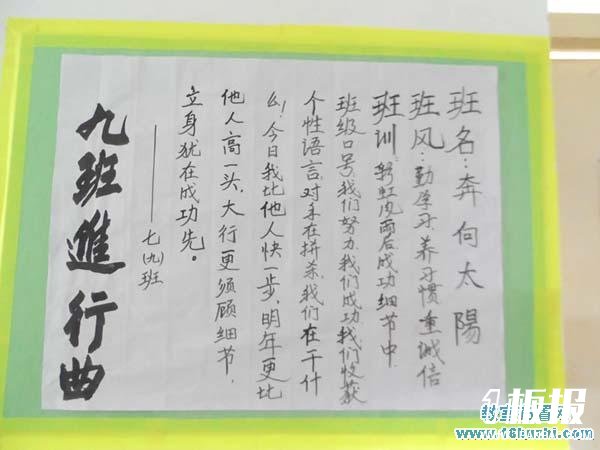 班名：奔向太陽
班风：勤学习、养习惯、重诚信
班训：虹风雨后成功细节中
班级口号：我们努力、我们成功、我们收获
个性语言：对手在拼杀，我们在干什
么！今日我比他人快一步，明年更比
他人高一头，大行更须顾细节，
立身犹在成功先。
——七(九)班
九班進行曲
板报
www.16buzhi.com